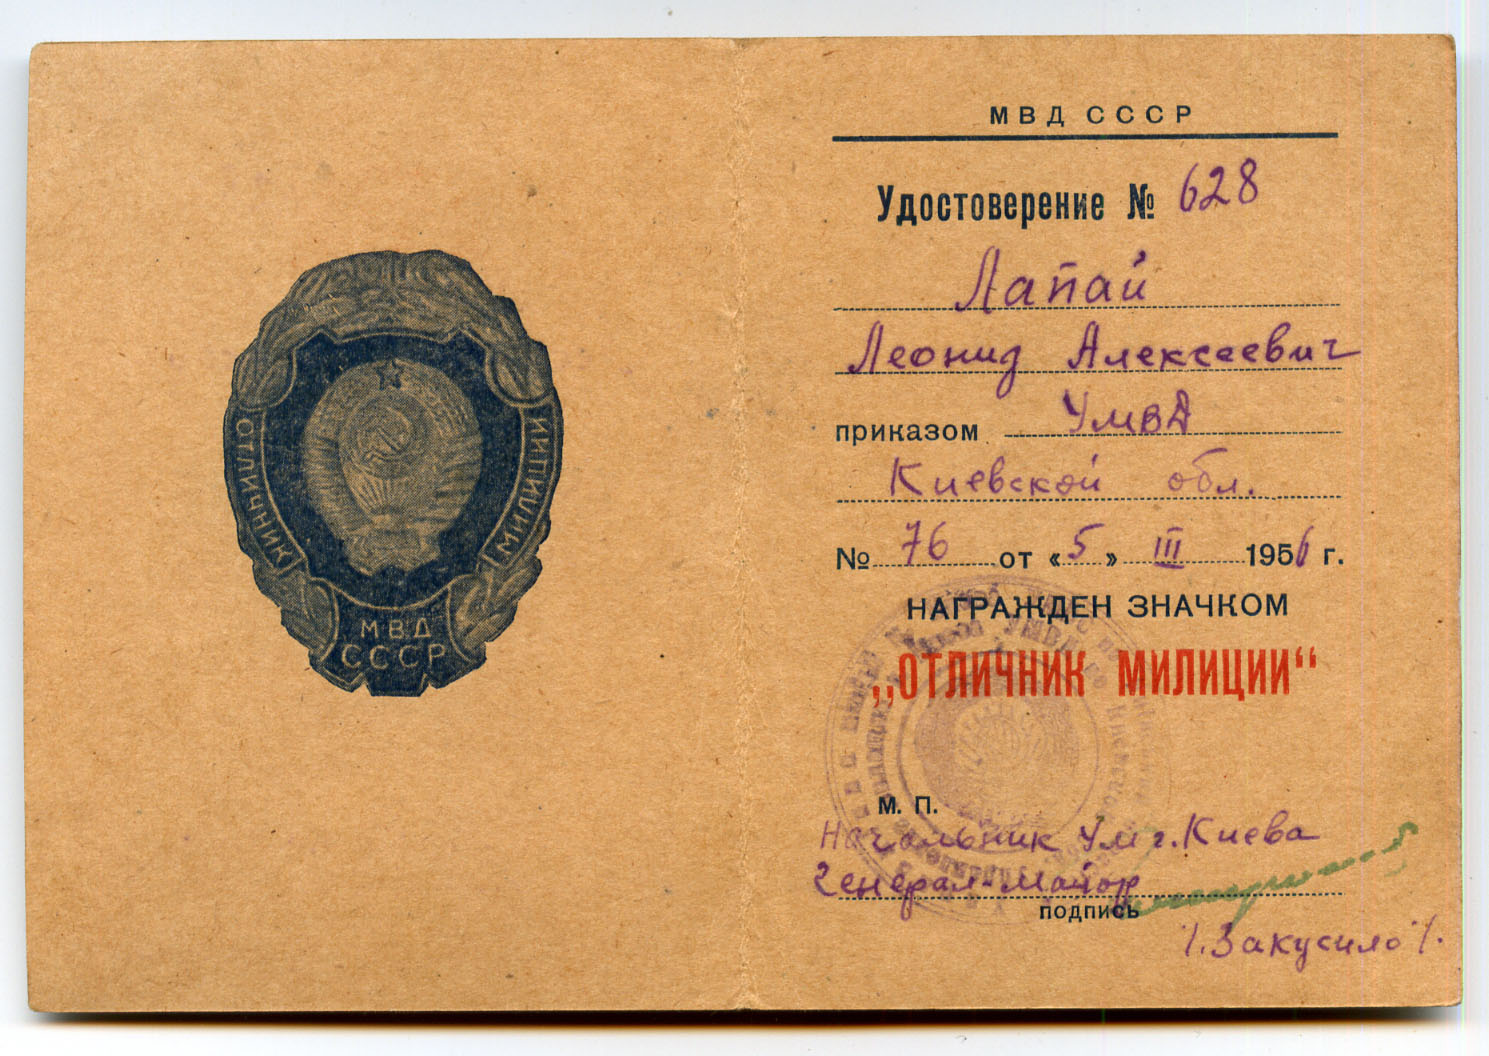 ОТЛИЧНИК МИЛИЦИИ
МВД
СССР
МВД СССР
Удостоверение № 628
Лапай
Леонид Алексеевич
приказом УМВД
Киевской обл.
№ 76 от «5» III 1956 г.
НАГРАЖДЕН ЗНАЧКОМ
„ОТЛИЧНИК МИЛИЦИИ“
М. П.
Начальник УМ г. Киева
Генерал-Майор
подпись
/.Закусило/.